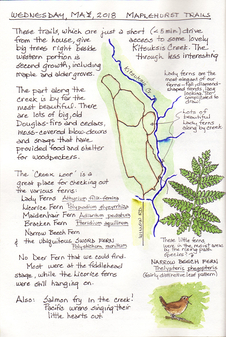 WEDNESDAY, MAY 2, 2018 MAPLEHURST TRAILS
These trails, which are just a short (<5min) drive
from the house, give access to some lovely
big trees right beside Kitsuksis Creek. The
western portion is through less interesting
second growth, including
maple and alder groves.
The part along
the creek is by far the
most beautiful. There
are lots of big, old
Douglas-firs and cedars,
moss-covered blow-downs
and snags that have
provided food and shelter
for woodpeckers.
The "Creek Loop" is a
great place for checking out
the various ferns:
Lady Ferns Athyrium filix-femina
Licorice Fern Polypodium glycyrrhiza
Maidenhair Fern Adiantum pedatum
Bracken Fern Pteridium aquilinum
Narrow Beech Fern
& the ubiquitous SWORD FERN
Polystichum munitum
No Deer Fern that we could find.
Most were at the fiddlehead
stage, while the Licorice ferns
were still hanging on.
Also: Salmon fry in the creek!
Pacific wrens singing their
little hearts out
Kitsuksis Cr.
Lady ferns are the
most elegant of our
ferns - tall, diamond-
shaped fronds, lacy
looking. Too
complicated to
draw!
Lots of
beautiful
Lady ferns
along by creek
These little ferns
were in the moist area
by the creek
species?
NARROW BEECH FERN
Thelypteris phegopteris
(Fairly distinctive leaf pattern)